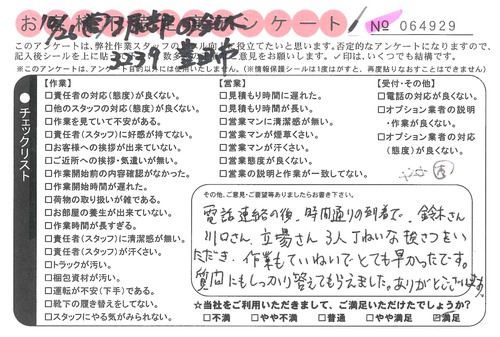 お客様 アンケート № 064929
このアンケートは、弊社作業スタッフのスキル向上に役立てたいと思います。否定的なアンケートになりますので、
記入後シールを上に貼
意見をお願いします。✓印は、いくつでも結構です。
※このアンケートは、アンケート目的以外には使用いたしません。(※情報保護シールは1度はがすと、再度貼りなおすことはできません)
チェックリスト
【作業】
□責任者の対応(態度)が良くない。
□他のスタッフの対応(態度)が良くない。
□作業を見ていて不安がある。
□責任者(スタッフ)に好感が持てない。
□お客様への挨拶が出来ていない。
□ご近所への挨拶・気遣いが無い。
□作業開始前の内容確認がなかった。
□作業開始時間が遅れた。
□荷物の取り扱いが雑である。
□お部屋の養生が出来ていない。
□作業時間が長すぎる。
□責任者(スタッフ)に清潔感が無い。
□責任者(スタッフ)が汗くさい。
□トラックが汚い。
□梱包資材が汚い。
□運転が不安(下手)である。
□靴下の履き替えをしてない。
□スタッフにやる気がみられない。
【営業】
□見積もり時間に遅れた。
□見積もり時間が長い。
□営業マンに清潔感が無い。
□営業マンが煙草くさい。
□営業マンが汗くさい。
□営業態度が良くない。
□営業の説明と作業が一致してない。
【受付・その他】
□電話の対応が良くない。
□オプション業者の説明
・作業が良くない。
□オプション業者の対応
(態度)が良くない。
その他、ご意見・ご要望等ありましたらお書き下さい。
電話連絡の後、時間通りの到着で、鈴木さん
川口さん、立場さん3人丁ねいな挨さつをい
ただき、作業もていねいでとても早かったです。
質問にもしっかり答えてもらえました。ありがとうございます。
☆当社をご利用いただきまして、ご満足いただけたでしょうか?
□不満 □やや不満 □普通 □やや満足 ☑満足